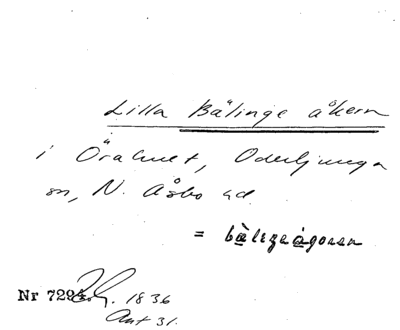 Lilla Bälinge åkern
i Örahuet, Oderljunga
sn, N. Åsbo hd
= bälegeågoren
Nr 729
1836
Akt 31.